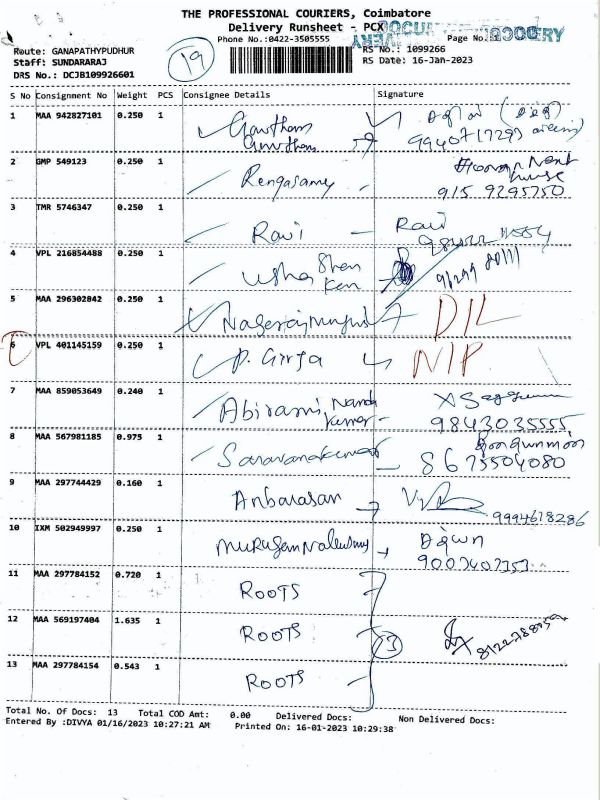 THE PROFESSIONAL COURIERS, Coimbatore
Delivery Runsheet - PCX
Phone No.:0422-3505555 Page No.:
Route: GANAPATHYPUDHUR RS No.: 1099266
Staff: SUNDARARAJ RS Date: 16-Jan-2023
DRS No.: DCJB109926601
19
S No Consignment No Weight PCS Consignee Details Signature
1 MAA 942827101 0.250 1 Gowtham
2 GMP 549123 0.250 1 Rengasamy
915 9295750
3 TMR 5746347 0.250 1 Ravi Ravi
4 VPL 216854488 0.250 1 Usha
5 MAA 296302842 0.250 1 D/L
6 VPL 401145159 0.250 1 P. Girja N/P
7 MAA 859053649 0.240 1 Abirami, Nanda
Kumar 9843035555
8 MAA 567981185 0.975 1 Saravanakumar 8675504080
9 MAA 297744429 0.160 1 Anbarasan
9994678286
10 IXM 502949997 0.250 1
11 MAA 297784152 0.720 1 ROOTS
12 MAA 569197404 1.635 1 ROOTS 3
13 MAA 297784154 0.543 1 ROOTS
Total No. Of Docs: 13 Total COD Amt: 0.00 Delivered Docs: Non Delivered Docs:
Entered By :DIVYA 01/16/2023 10:27:21 AM Printed On: 16-01-2023 10:29:38